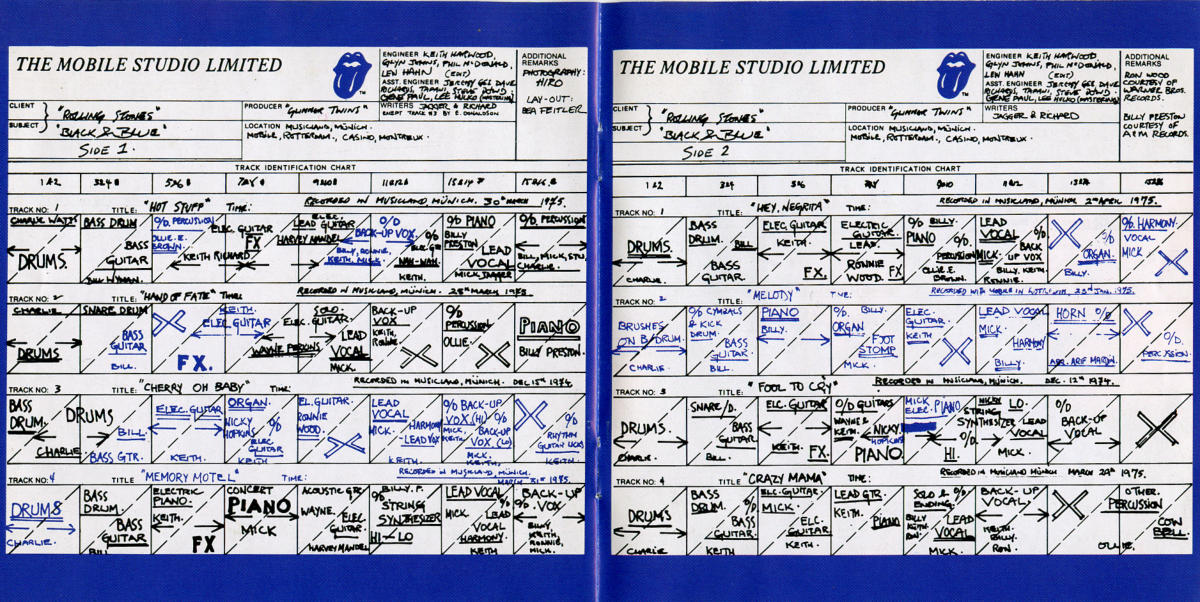 THE MOBILE STUDIO LIMITED
TM
ENGINEER KEITH HARWOOD,
GLYN JOHNS, PHIL McDONALD,
LEW HAHN (EDIT)
ASST. ENGINEER JEREMY GEE, DAVE
RICHARDS, TAPANI, STEVE DOWD,
GENE PAUL, LEE HULKO (MASTERING)
ADDITIONAL
REMARKS
PHOTOGRAPHY:
HIRO
LAY-OUT:
BEA FEITLER
CLIENT
"ROLLING STONES"
SUBJECT
"BLACK & BLUE"
SIDE 1.
PRODUCER "GLIMMER TWINS"
WRITERS JAGGER & RICHARD
EXCEPT TRACK #3 BY E. DONALDSON
LOCATION MUSICLAND, MÜNICH.
MOBILE, ROTTERDAM., CASINO, MONTREUX.
TRACK IDENTIFICATION CHART
1&2
TRACK NO: 1 TITLE: "HOT STUFF" TIME: RECORDED IN MUSICLAND, MÜNICH. 30TH MARCH 1975.
CHARLIE WATTS
DRUMS.
BASS DRUM
BASS
GUITAR
BILL WYMAN.
% PERCUSSION
OLLIE. E.
BROWN.
ELEC. GUITAR
FX
KEITH RICHARD
ELEC.
LEAD GUITAR
HARVEY MANDEL
O/D
BACK-UP VOX
BILLY, RONNIE,
KEITH, MICK.
WAH-WAH.
KEITH.
% PIANO
BILLY
PRESTON
LEAD
VOCAL
MICK JAGGER
% PERCUSSION
BILL, MICK, STU,
CHARLIE.
TRACK NO: 2 TITLE: "HAND OF FATE" TIME: RECORDED IN MUSICLAND, MÜNICH. 25TH MARCH 1975.
CHARLIE
DRUMS
SNARE DRUM
BASS
GUITAR
BILL.
KEITH.
ELEC. GUITAR
FX.
SOLO
ELEC. GUITAR.
WAYNE PERKINS
LEAD
VOCAL
MICK
BACK-UP
VOX
KEITH,
RONNIE
%
PERCUSSION
OLLIE.
PIANO
BILLY PRESTON.
TRACK NO: 3 TITLE: "CHERRY OH BABY" TIME: RECORDED IN MUSICLAND, MÜNICH. DEC. 15TH 1974.
BASS
DRUM.
DRUMS
CHARLIE
BILL
BASS GTR.
ELEC. GUITAR
KEITH.
ORGAN.
NICKY
HOPKINS
%
ELEC
GUITAR
KEITH
EL. GUITAR.
RONNIE
WOOD.
LEAD
VOCAL
MICK.
HARMONY
LEAD VOX
KEITH
% BACK-UP
VOX (HI)
MICK,
KEITH
%
BACK-UP
VOX (LO)
MICK,
KEITH
%
RHYTHM
GUITAR LICKS
KEITH
TRACK NO: 4 TITLE: "MEMORY MOTEL" TIME: RECORDED IN MUSICLAND, MÜNICH.
MARCH 31ST 1975
DRUMS
CHARLIE.
BASS
DRUM.
BASS
GUITAR
BILL
ELECTRIC
PIANO.
KEITH.
FX
CONCERT
PIANO
MICK
ACOUSTIC GTR
WAYNE.
ELEC.
GUITAR.
HARVEY MANDEL
BILLY. P.
%
STRING
SYNTHESIZER
HI – LO
LEAD VOCAL
MICK.
LEAD
VOCAL
HARMONY.
KEITH
BACK-UP
% VOX.
BILLY,
KEITH,
RONNIE,
MICK.
THE MOBILE STUDIO LIMITED
TM
ENGINEER KEITH HARWOOD,
GLYN JOHNS, PHIL McDONALD,
LEW HAHN (EDIT)
ASST. ENGINEER JEREMY GEE, DAVE
RICHARDS, TAPANI, STEVE DOWD,
GENE PAUL, LEE HULKO (MASTERING)
ADDITIONAL
REMARKS
RON WOOD
COURTESY OF
WARNER BROS.
RECORDS.
BILLY PRESTON
COURTESY OF
A&M RECORDS.
CLIENT
"ROLLING STONES"
SUBJECT
"BLACK & BLUE"
SIDE 2
PRODUCER "GLIMMER TWINS"
WRITERS
JAGGER & RICHARD
LOCATION MUSICLAND, MÜNICH.
MOBILE, ROTTERDAM., CASINO, MONTREUX.
TRACK IDENTIFICATION CHART
1&2 3&4 5&6
TRACK NO: 1 TITLE: "HEY, NEGRITA" TIME: RECORDED IN MUSICLAND, MÜNICH 2ND APRIL 1975.
DRUMS.
CHARLIE.
BASS
DRUM.
BILL
BASS
GUITAR
ELEC GUITAR
KEITH.
FX.
ELECTRIC
GUITAR.
LEAD.
RONNIE
WOOD.
FX
% BILLY.
PIANO
%
PERCUSSION
OLLIE E.
BROWN.
LEAD
VOCAL
MICK.
%
BACK
UP VOX
BILLY. KEITH.
RONNIE.
O/D
ORGAN.
BILLY.
% HARMONY.
VOCAL
MICK
TRACK NO: 2 TITLE: "MELODY" TIME: RECORDED WITH MOBILE IN ROTTERDAM, 23RD JAN. 1975.
BRUSHES
ON B/DRUM.
CHARLIE.
% CYMBALS
& KICK
DRUM
BASS
GUITAR.
BILL.
PIANO
BILLY.
% BILLY.
ORGAN
FOOT
STOMP
MICK.
ELEC.
GUITAR.
KEITH
LEAD VOCAL
MICK.
HARMONY
BILLY.
HORN O/D
ARR. ARIF MARDIN.
O/D
PERCUSSION.
TRACK NO: 3 TITLE: "FOOL TO CRY" RECORDED IN MUSICLAND, MÜNICH. DEC. 12TH 1974.
DRUMS.
CHARLIE.
SNARE/D.
BASS
GUITAR
BILL.
ELC. GUITAR
KEITH.
FX.
O/D GUITARS
WAYNE &
KEITH.
NICKY.
HOPKINS
PIANO.
MICK
ELEC. PIANO
O/D.
NICKY
STRING
SYNTHESIZER
HI. LO.
LEAD
VOCAL
MICK.
O/D
BACK-UP
VOCAL
TRACK NO: 4 TITLE: "CRAZY MAMA" RECORDED IN MUSICLAND MÜNICH MARCH 29TH 1975.
DRUMS
CHARLIE
BASS
DRUM.
BASS
GUITAR.
KEITH
ELC. GUITAR
MICK.
ELC.
GUITAR.
KEITH.
LEAD GTR.
KEITH.
PIANO
SOLO &
ENDING:
BILLY
KEITH.
RON.
LEAD
VOCAL
MICK.
BACK-UP
VOCAL.
KEITH.
BILLY.
RON.
OTHER.
PERCUSSION
COW
BELL.
OLLIE.